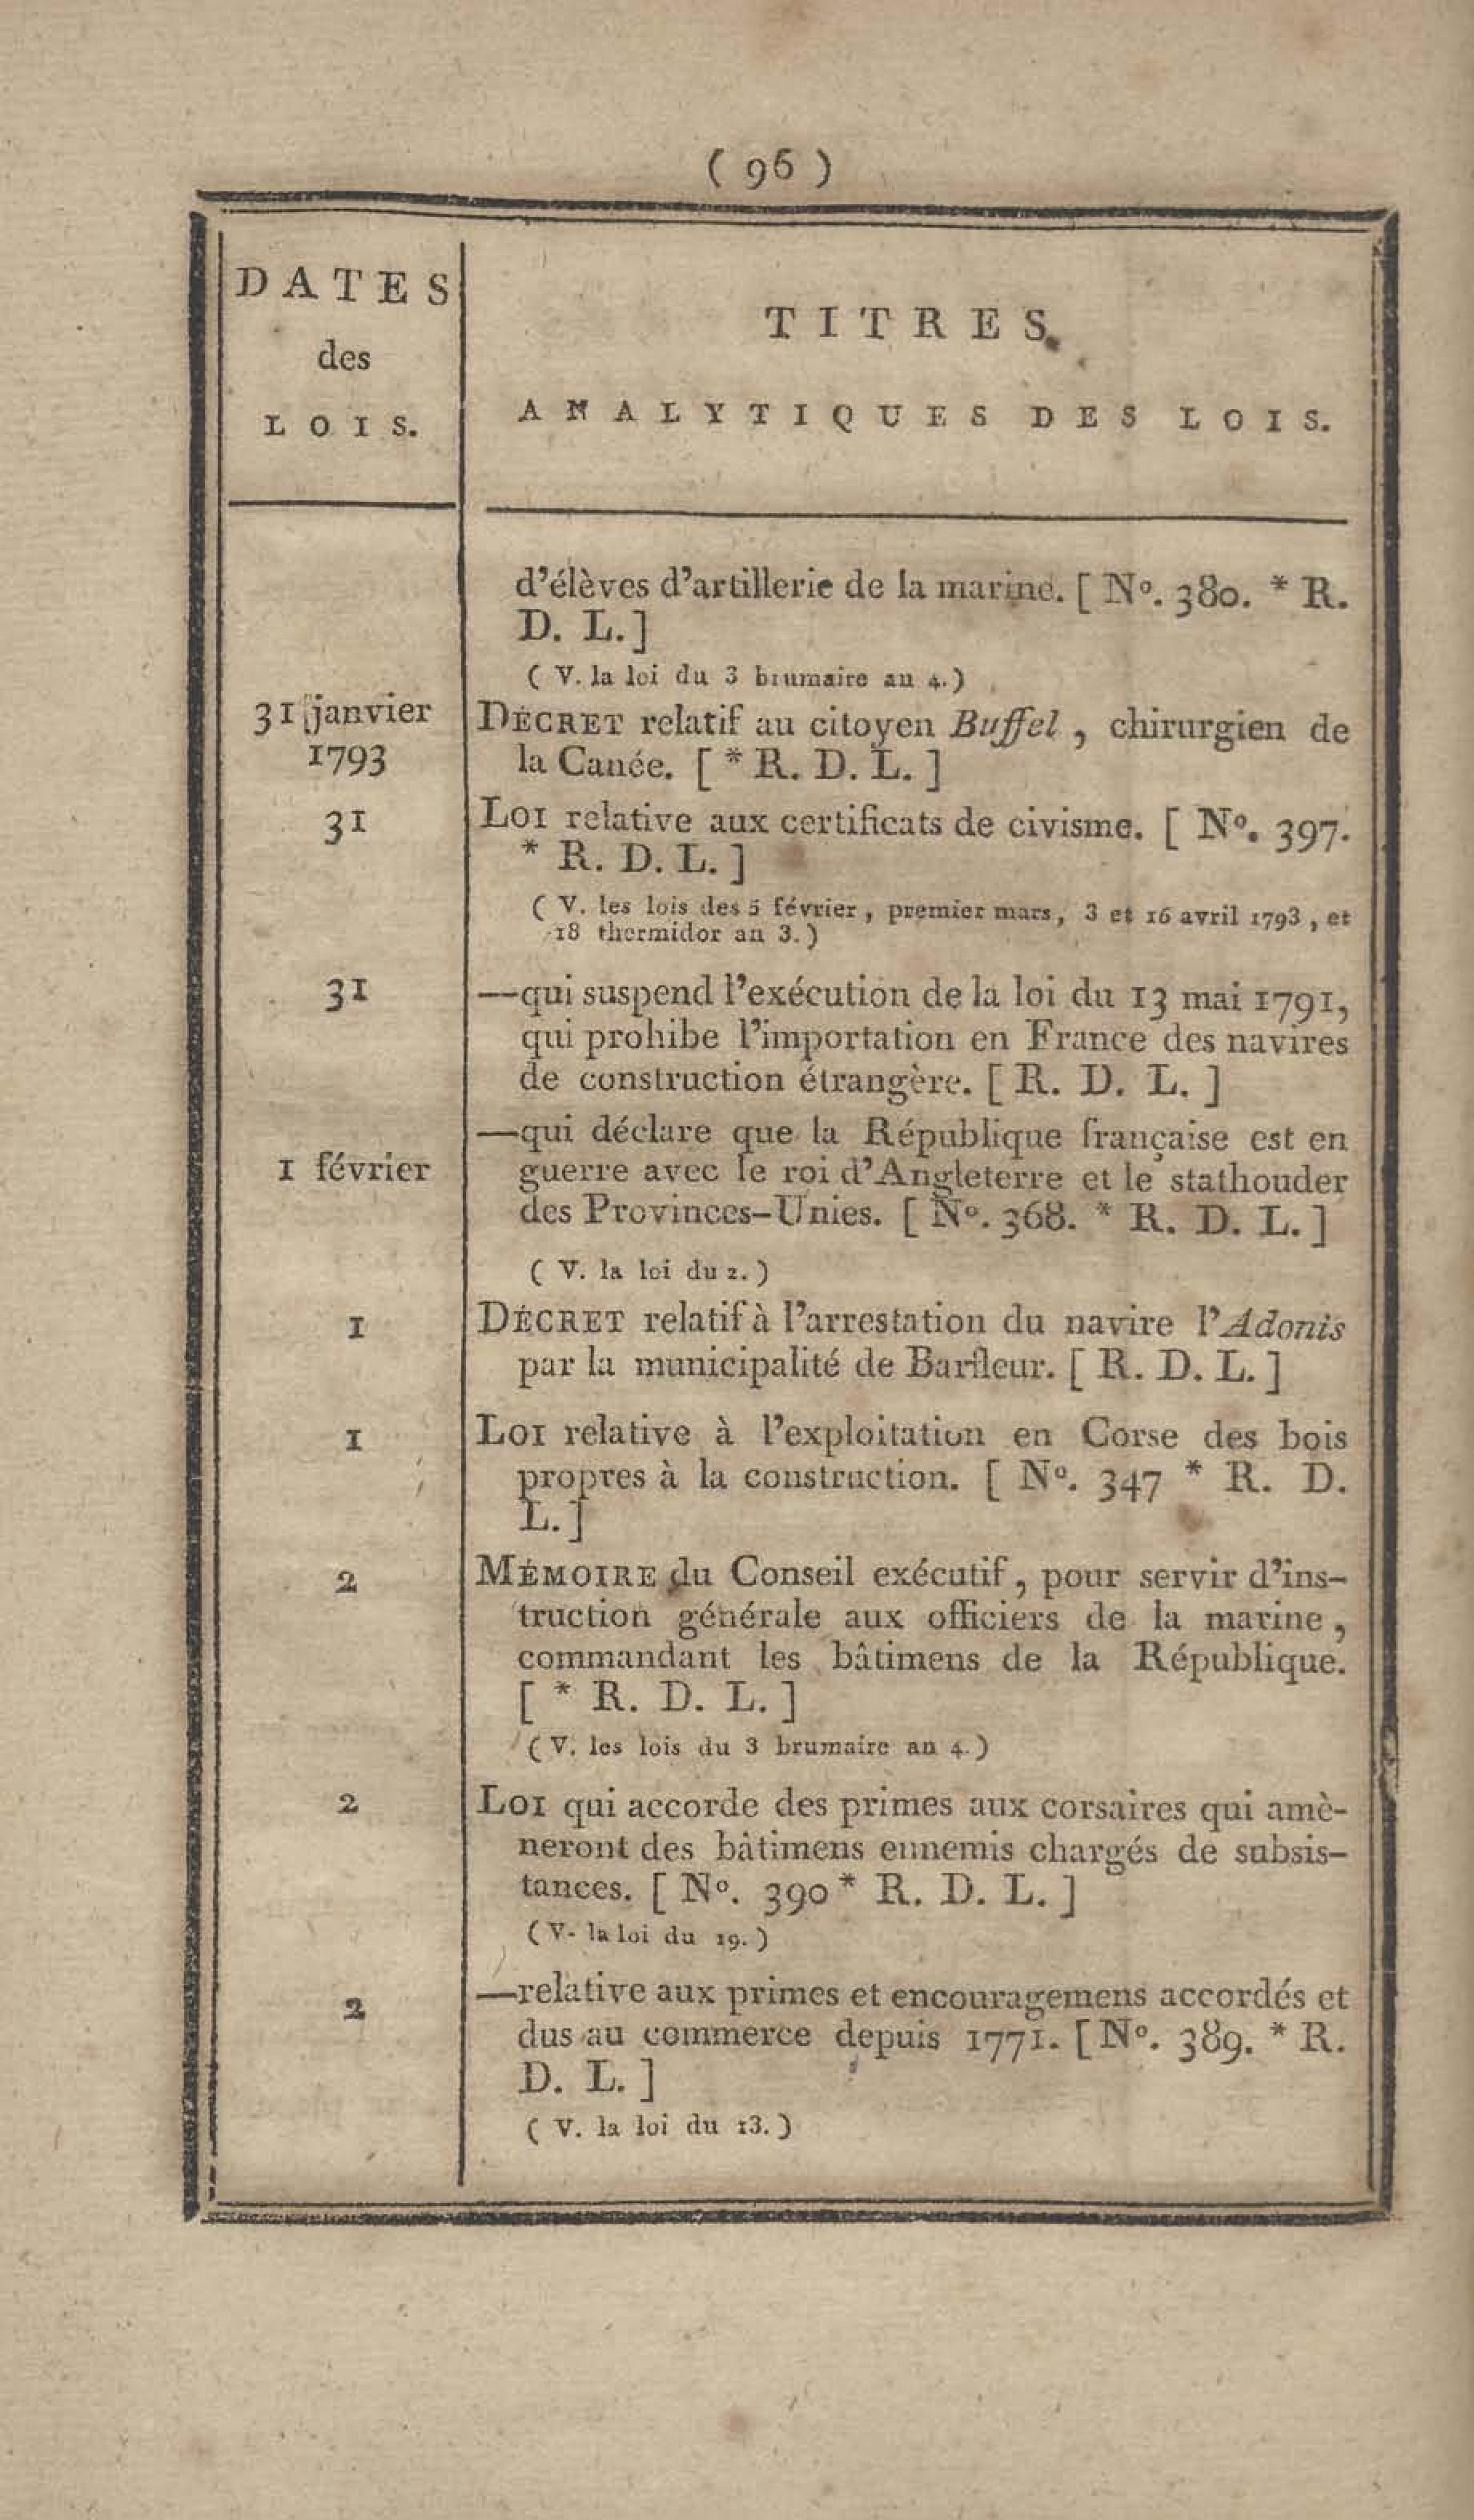 ( 96 )
DATES
des
LOIS.
TITRES
ANALYTIQUES DES LOIS.
d'élèves d'artillerie de la marine. [ N°. 380. * R.
D. L.]
( V. la loi du 3 brumaire an 4.)
31 janvier
1793
DÉCRET relatif au citoyen Buffel , chirurgien de
la Canée. [ * R. D. L. ]
31
LOI relative aux certificats de civisme. [ N°. 397.
* R. D. L. ]
( V. les lois des 5 février , premier mars , 3 et 16 avril 1793 , et
18 thermidor an 3. )
31
—qui suspend l'exécution de la loi du 13 mai 1791,
qui prohibe l'importation en France des navires
de construction étrangère. [ R. D. L. ]
1 février
—qui déclare que la République française est en
guerre avec le roi d'Angleterre et le stathouder
des Provinces-Unies. [ N°. 368. * R. D. L. ]
( V. la loi du 2. )
1
DÉCRET relatif à l'arrestation du navire l'Adonis
par la municipalité de Barfleur. [ R. D. L. ]
1
LOI relative à l'exploitation en Corse des bois
propres à la construction. [ N°. 347 * R. D.
L. ]
2
MÉMOIRE du Conseil exécutif , pour servir d'ins-
truction générale aux officiers de la marine ,
commandant les bâtimens de la République.
[ * R. D. L. ]
( V. les lois du 3 brumaire an 4. )
2
LOI qui accorde des primes aux corsaires qui amè-
neront des bâtimens ennemis chargés de subsis-
tances. [ N°. 390 * R. D. L. ]
( V- la loi du 19. )
2
—relative aux primes et encouragemens accordés et
dus au commerce depuis 1771. [ N°. 389. * R.
D. L. ]
( V. la loi du 13. )